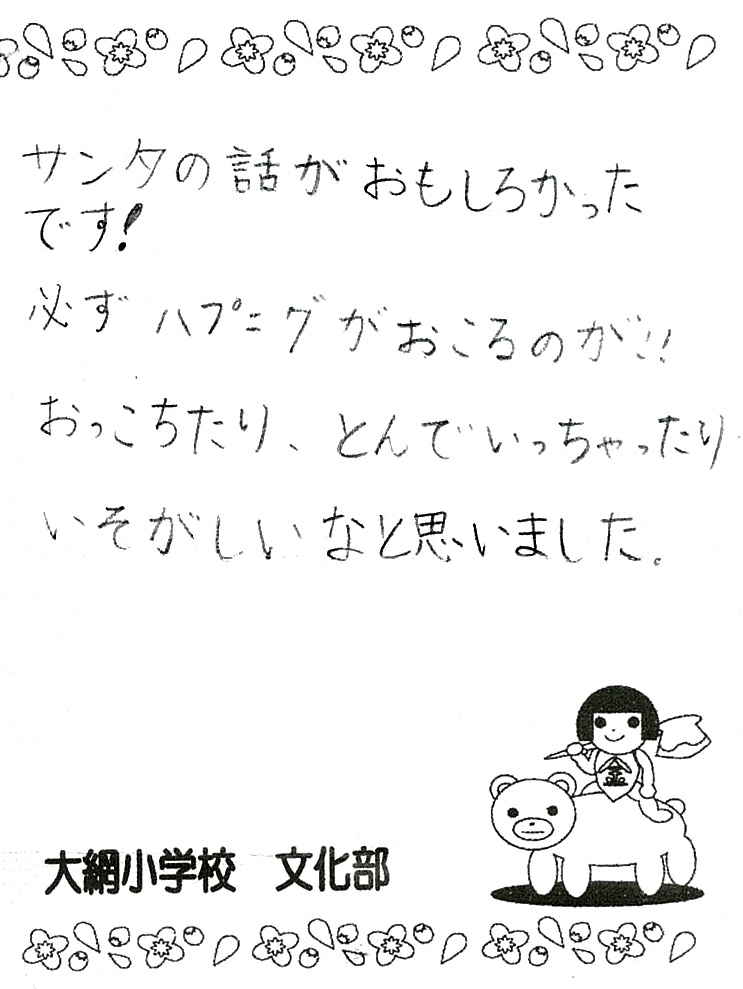 サンタの話がおもしろかった
です!
必ずハプニグがおこるのが!!
おっこちたり、とんでいっちゃったり
いそがしいなと思いました。
金
大網小学校 文化部